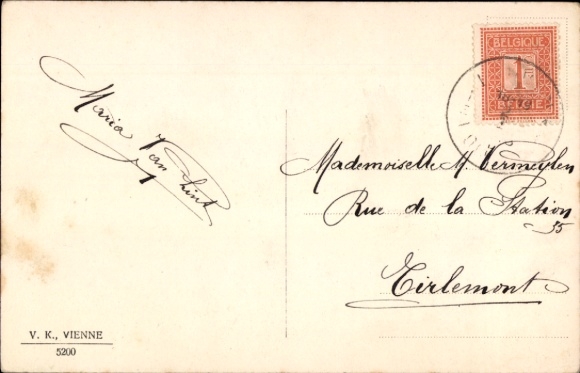 Maria Van
BELGIQUE
1
BELGIE
Mademoiselle M. Vermeylen
Rue de la Station
55
Tirlemont
V. K., VIENNE
5200